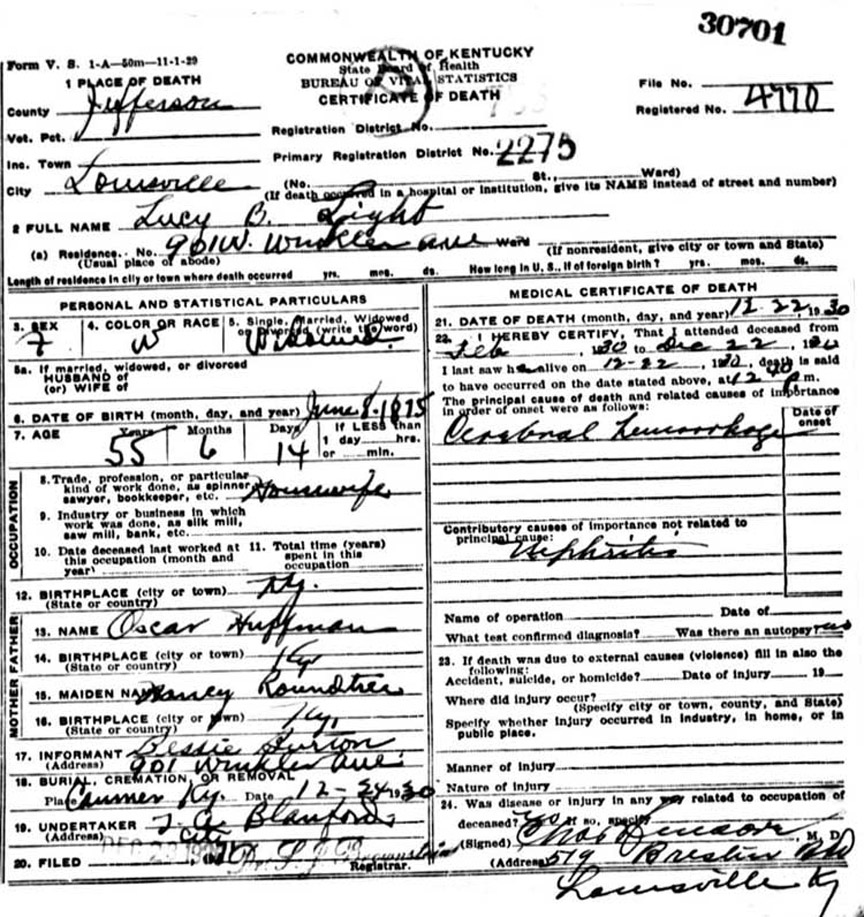 30701
Form V. S. 1-A—50m—11-1-29
COMMONWEALTH OF KENTUCKY
State Board of Health
BUREAU OF VITAL STATISTICS
CERTIFICATE OF DEATH
1 PLACE OF DEATH
County Jefferson
File No.
Registered No. 4770
Vot. Pct.
Registration District No.
Inc. Town
Primary Registration District No. 2275
City Louisville (No. St., Ward)
(If death occurred in a hospital or institution, give its NAME instead of street and number)
2 FULL NAME Lucy B. Light
(a) Residence. No. 901 W. Winkler ave Ward (If nonresident, give city or town and State)
(Usual place of abode)
Length of residence in city or town where death occurred yrs. mos. ds. How long in U. S., if of foreign birth? yrs. mos. ds.
PERSONAL AND STATISTICAL PARTICULARS
3. SEX 4. COLOR OR RACE 5. Single, Married, Widowed or Divorced (write the word)
F W Widowed
5a. If married, widowed, or divorced
HUSBAND of
(or) WIFE of
6. DATE OF BIRTH (month, day, and year) June 8-1875
7. AGE Years Months Days If LESS than
1 day hrs.
or min.
55 6 14
OCCUPATION
8. Trade, profession, or particular
kind of work done, as spinner,
sawyer, bookkeeper, etc. Housewife
9. Industry or business in which
work was done, as silk mill,
saw mill, bank, etc.
10. Date deceased last worked at
this occupation (month and
year)
11. Total time (years)
spent in this
occupation
12. BIRTHPLACE (city or town) Ky.
(State or country)
FATHER
13. NAME Oscar Huffman
14. BIRTHPLACE (city or town) Ky
(State or country)
MOTHER
15. MAIDEN NAME Nancy Roundtree
16. BIRTHPLACE (city or town) Ky.
(State or country)
17. INFORMANT Bessie Burton
(Address) 901 Winkler ave.
18. BURIAL, CREMATION, OR REMOVAL
Place Canmer Ky. Date 12-24 1930
19. UNDERTAKER Blanford
(Address) City
20. FILED DEC 23 Registrar.
MEDICAL CERTIFICATE OF DEATH
21. DATE OF DEATH (month, day, and year) 12-22, 1930
22. I HEREBY CERTIFY, That I attended deceased from
Feb , 1930 to Dec 22 , 1930
I last saw h alive on 12-22 , 1930, death is said
to have occurred on the date stated above, at m.
The principal cause of death and related causes of importance
in order of onset were as follows:
Date of
onset
Cerebral hemorrhage
Contributory causes of importance not related to
principal cause:
Nephritis
Name of operation Date of
What test confirmed diagnosis? Was there an autopsy?
23. If death was due to external causes (violence) fill in also the
following:
Accident, suicide, or homicide? Date of injury 19
Where did injury occur?
(Specify city or town, county, and State)
Specify whether injury occurred in industry, in home, or in
public place.
Manner of injury
Nature of injury
24. Was disease or injury in any way related to occupation of
deceased? If so, specify
(Signed) Chas , M. D.
(Address) 519
Louisville Ky